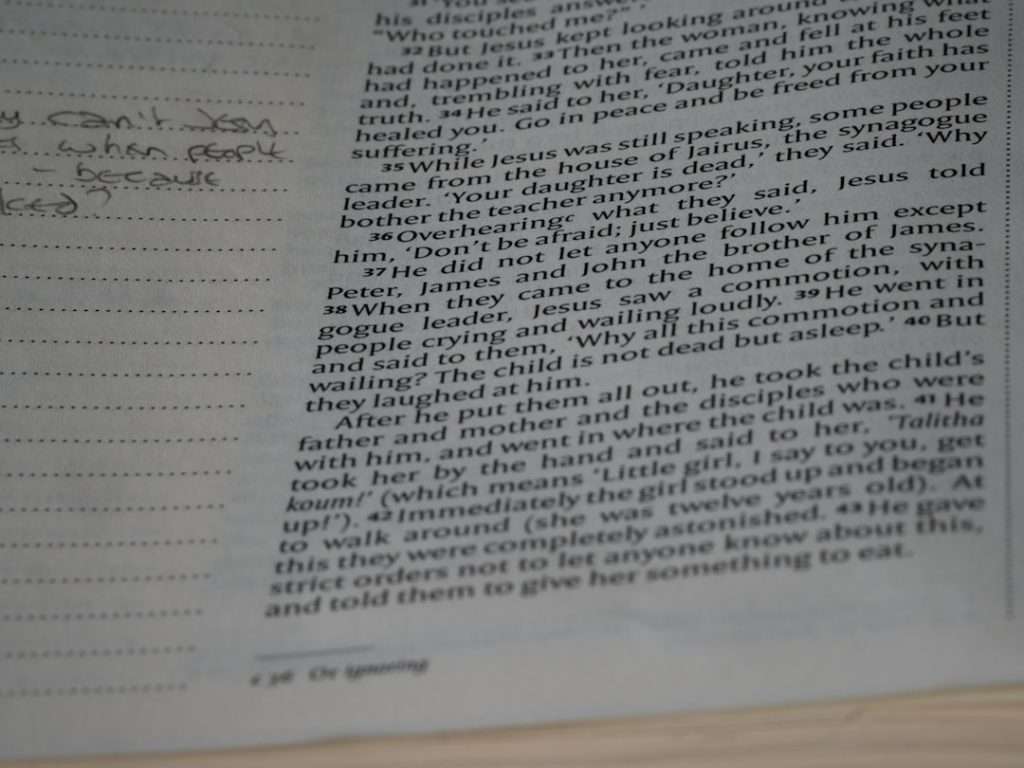 can't
when people
- because
31 "You see
his disciples
"Who touched me?"'
32 But Jesus kept looking around
had done it. 33 Then the woman, knowing what
had happened to her, came and fell at his feet
and, trembling with fear, told him the whole
truth. 34 He said to her, 'Daughter, your faith has
healed you. Go in peace and be freed from your
suffering.'
35 While Jesus was still speaking, some people
came from the house of Jairus, the synagogue
leader. 'Your daughter is dead,' they said. 'Why
bother the teacher anymore?'
36 Overhearing c what they said, Jesus told
him, 'Don't be afraid; just believe.'
37 He did not let anyone follow him except
Peter, James and John the brother of James.
38 When they came to the home of the syna-
gogue leader, Jesus saw a commotion, with
people crying and wailing loudly. 39 He went in
and said to them, 'Why all this commotion and
wailing? The child is not dead but asleep.' 40 But
they laughed at him.
After he put them all out, he took the child's
father and mother and the disciples who were
with him, and went in where the child was. 41 He
took her by the hand and said to her, 'Talitha
koum!' (which means 'Little girl, I say to you, get
up!'). 42 Immediately the girl stood up and began
to walk around (she was twelve years old). At
this they were completely astonished. 43 He gave
strict orders not to let anyone know about this,
and told them to give her something to eat.
c 36 Or ignoring